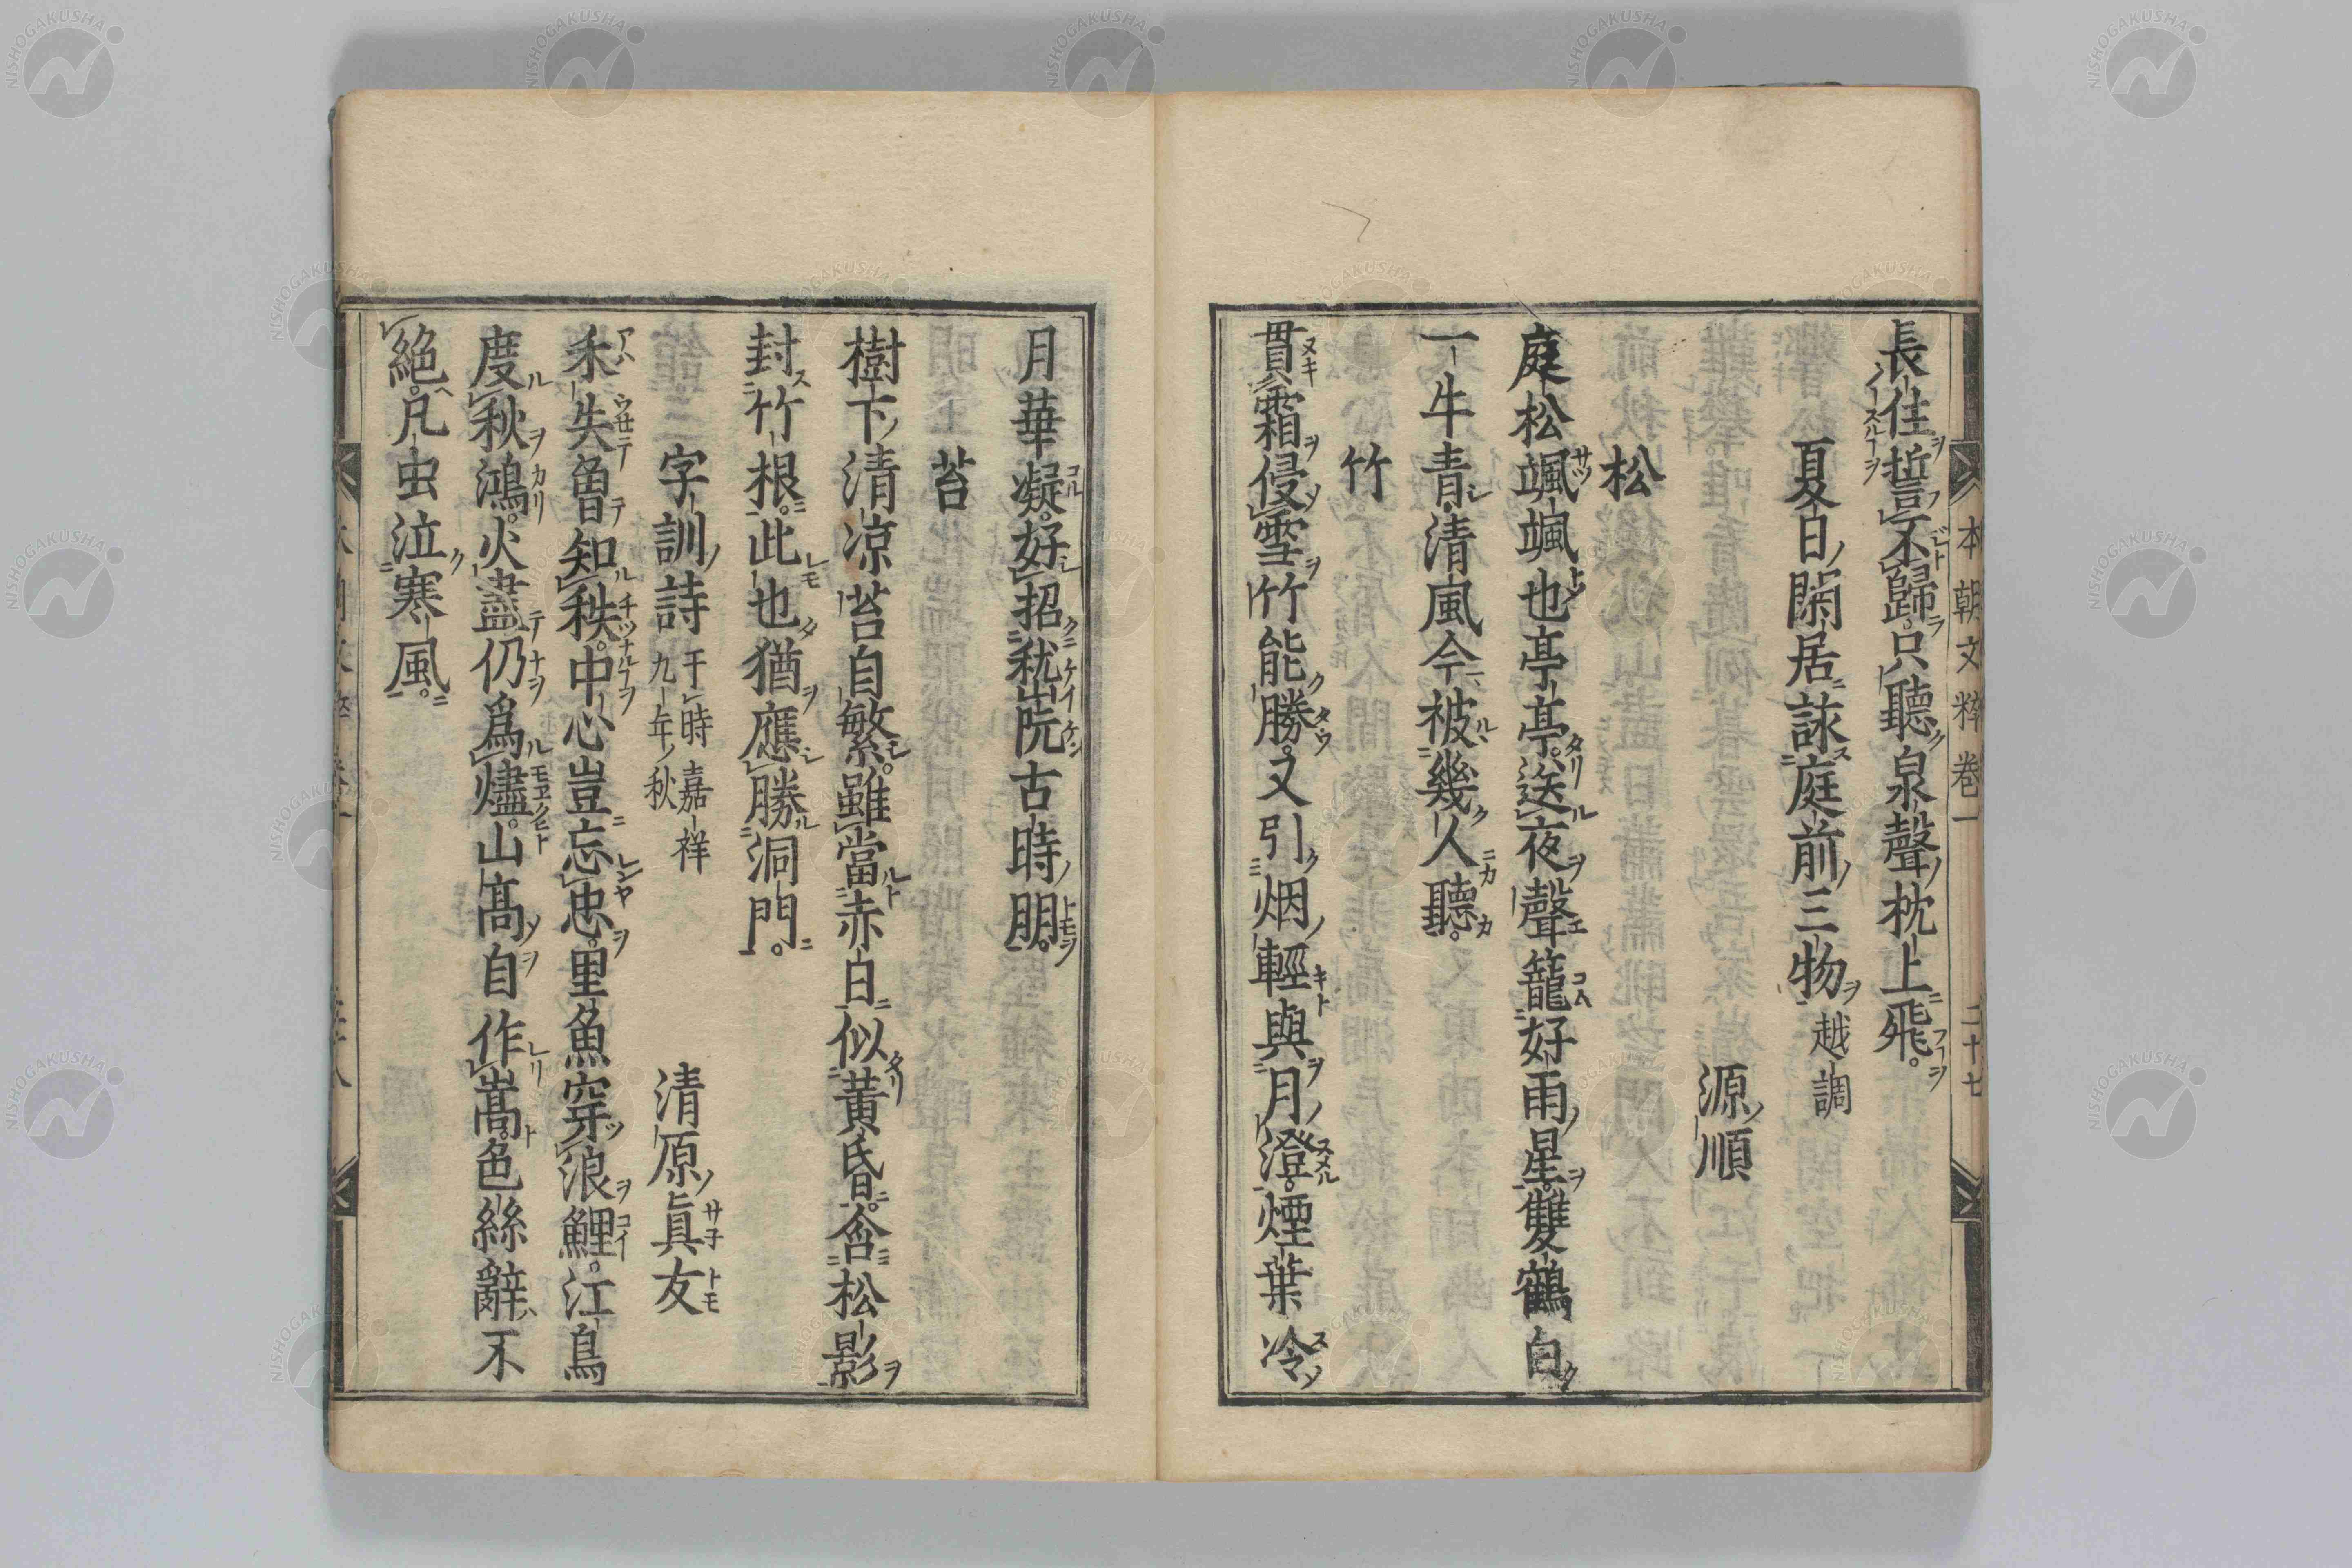 本朝文粹卷一 二十七
長住誓言不歸只聽泉聲枕上飛
夏日閑居詠庭前三物 越調
源順
松
庭松颯颯也亭亭送夜聲籠好雨星雙鶴白
一牛青清風今被幾人聽
竹
貫霜侵雪竹能勝又引烟輕與月澄煙葉冷
月華凝好招嵆阮古時朋
苔
樹下清凉苔自繁雖當赤白似黃昏含松影
封竹根此也猶應勝洞門
字訓詩 于時嘉祥
九年秋
清原眞友
禾失魯知秩中心豈忘忠里魚穿浪鯉江鳥
度秋鴻火盡仍爲燼山高自作嵩色絲辭不
絕凡虫泣寒風